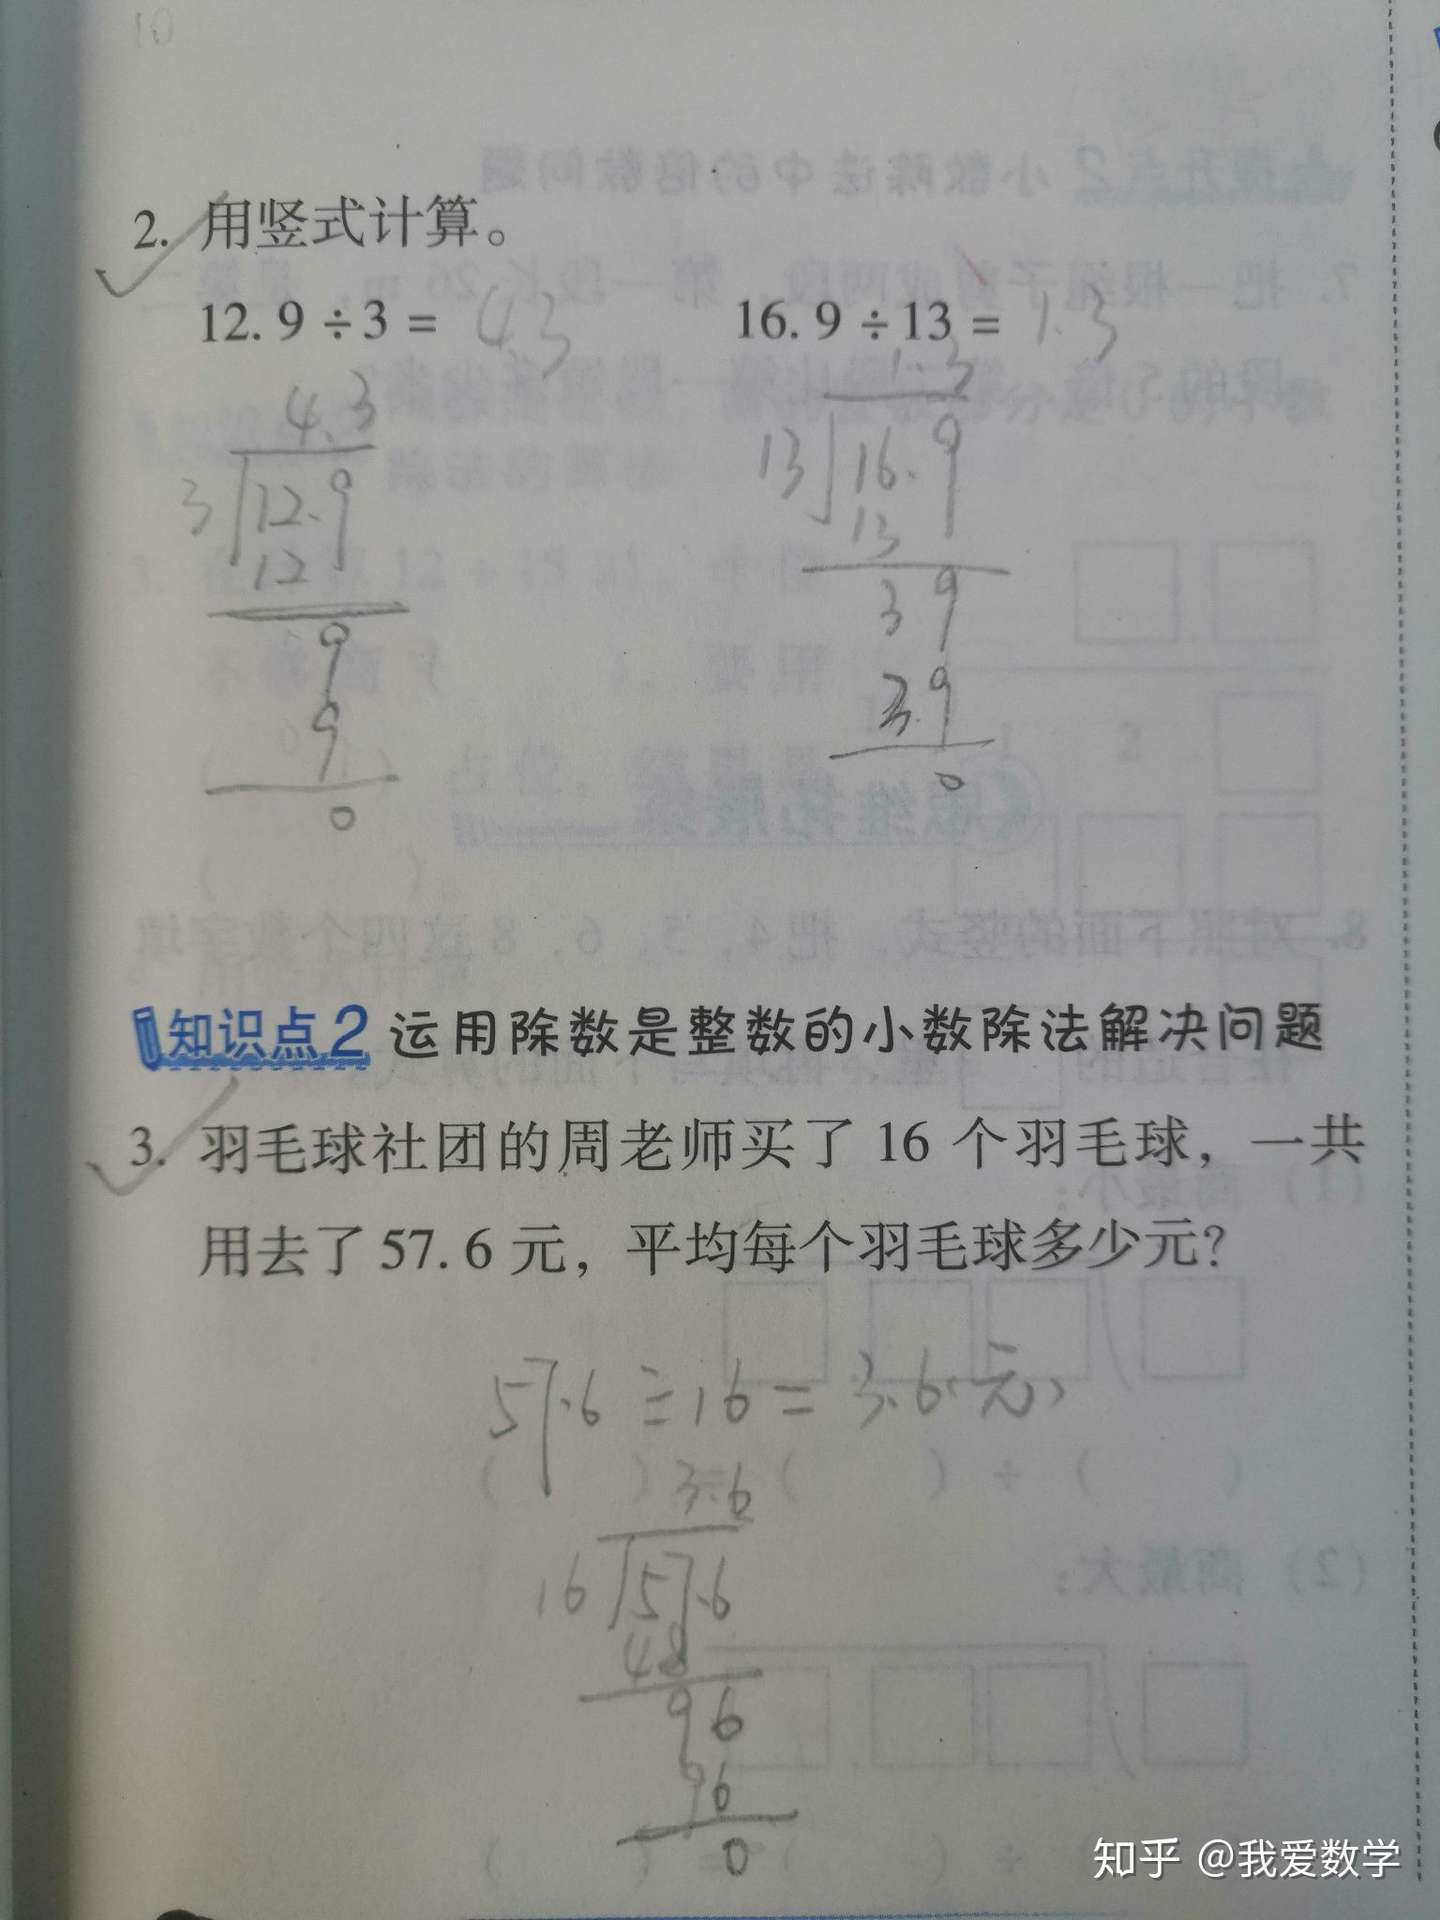 2. 用竖式计算。
12.9÷3= 43
16.9÷13= 1.3
4.3
3 12.9
12
9
9
0
1.3
13 16.9
13
39
3.9
0
知识点2 运用除数是整数的小数除法解决问题
3. 羽毛球社团的周老师买了16个羽毛球，一共
用去了57.6元，平均每个羽毛球多少元？
57.6÷16=3.6(元)
3.6
16 57.6
48
96
96
0
知乎 @我爱数学